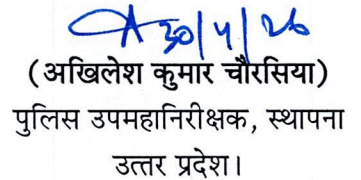 30/4/26
(अखिलेश कुमार चौरसिया)
पुलिस उपमहानिरीक्षक, स्थापना
उत्तर प्रदेश।